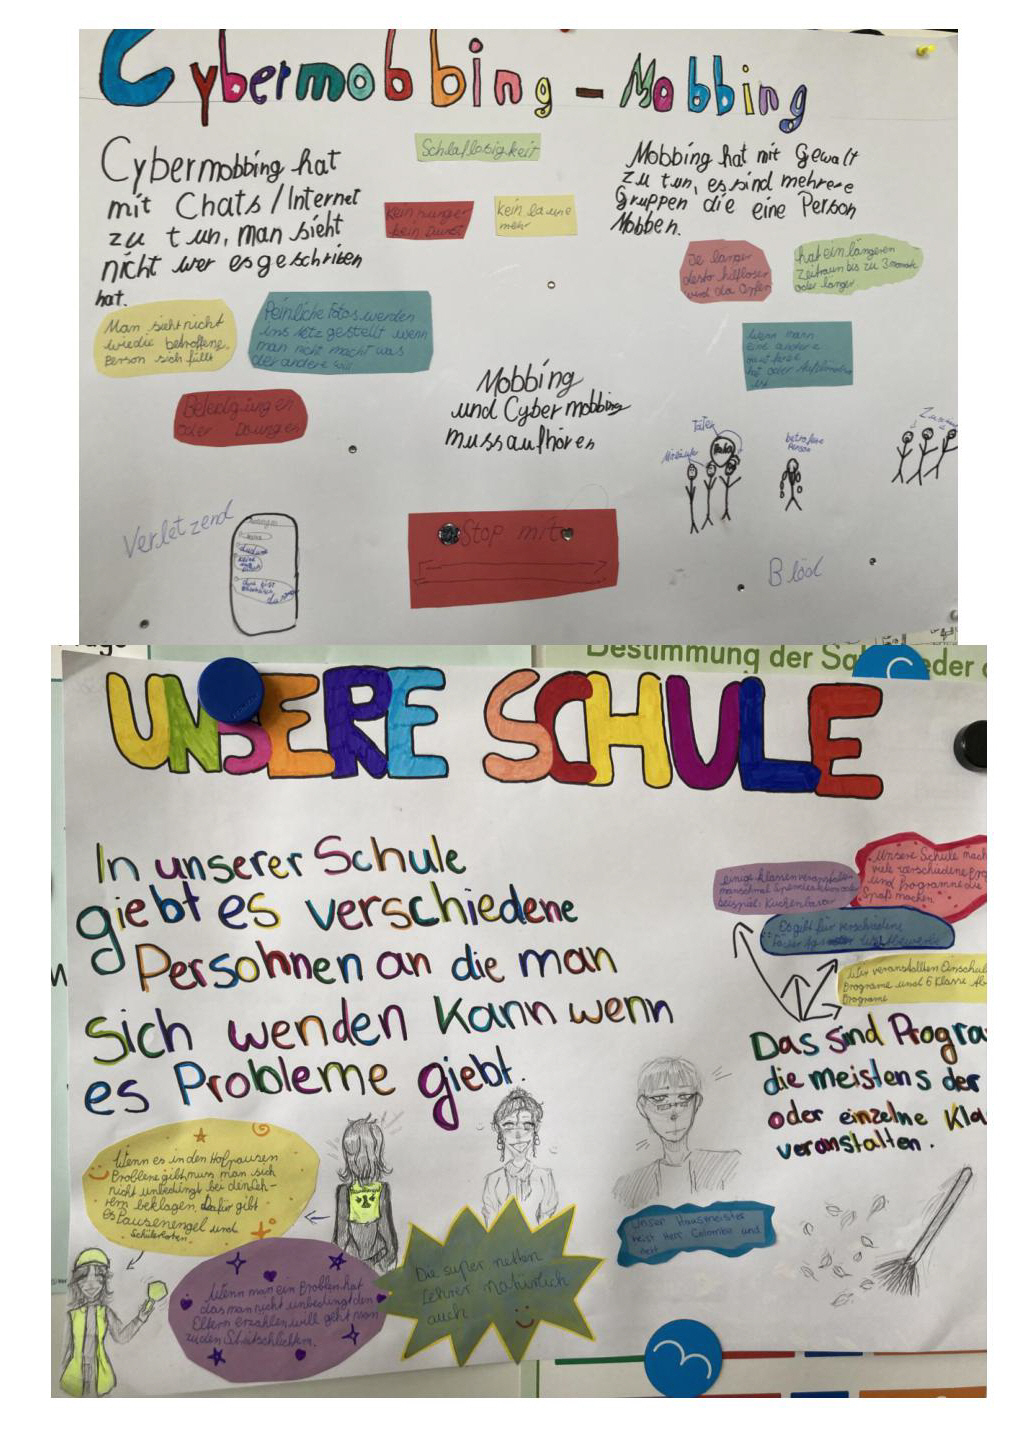 Cybermobbing - Mobbing
Cybermobbing hat
mit Chats/Internet
zu tun, man sieht
nicht wer es geschriben
hat.
Schlaflosigkeit
kein hunger
kein Durst
kein laune
mehr
Mobbing hat mit Gewalt
zu tun, es sind mehrere
Gruppen die eine Person
Mobben.
Je länger
desto hilfloser
wird da Opfer
hat ein längeren
Zeitraum bis zu 3 monate
oder länger
Man sieht nicht
wie die betroffene
Person sich fühlt
Peinliche Fotos werden
ins Netz gestellt wenn
man nicht macht was
der andere will
wenn mann
eine andere
hat oder
Beleidigungen
oder
Mobbing
und Cybermobbing
muss aufhören
Täter
betroffene
Person
Verletzend
du bist
Stop mit
Blöd
Bestimmung der
UNSERE SCHULE
In unserer Schule
giebt es verschiedene
Persohnen an die man
sich wenden kann wenn
es Probleme giebt.
einige Klassen veranstalten
manchmal
beispiel: Kuchenbasar
Unsere Schule mach
viele verschiedene Pro
und Programme die
Spaß machen
Es gibt für verschiedene
Fächer
Wir veranstallten Einschul
Programe und 6 Klasse Ab
Programe
Das sind Progra
die meistens der
oder einzelne Kla
veranstalten.
Wenn es in den Hofpausen
Probleme gibt, muss man sich
nicht unbedingt bei den Leh-
rern beklagen. Dafür gibt
es Pausenengel und
Schülerlotsen.
Wenn man ein Problem hat
das man nicht unbedingt den
Eltern erzählen will geht man
zu den Streitschlichtern.
Die super netten
Lehrer natürlich
auch
Unser Hausmeister
heist Herr Colombo und